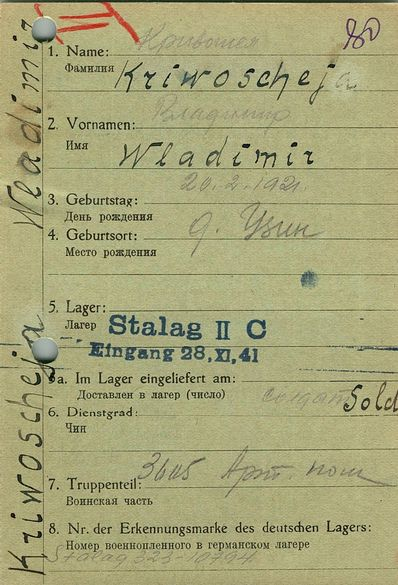 II
80
Кривошея
1. Name:
Фамилия
Kriwoscheja
Владимир
2. Vornamen:
Имя
Wladimir
20.2.1921.
3. Geburtstag:
День рождения
4. Geburtsort: д. Узин
Место рождения
5. Lager:
Лагер
Stalag II C
Eingang 28. XI. 41
5a. Im Lager eingeliefert am:
Доставлен в лагер (число)
6. Dienstgrad: soldat Sold
Чин
7. Truppenteil: 3605 Арт. полк
Воинская часть
8. Nr. der Erkennungsmarke des deutschen Lagers:
Номер военнопленного в германском лагере
Stalag 323
Kriwoscheja Wladimir